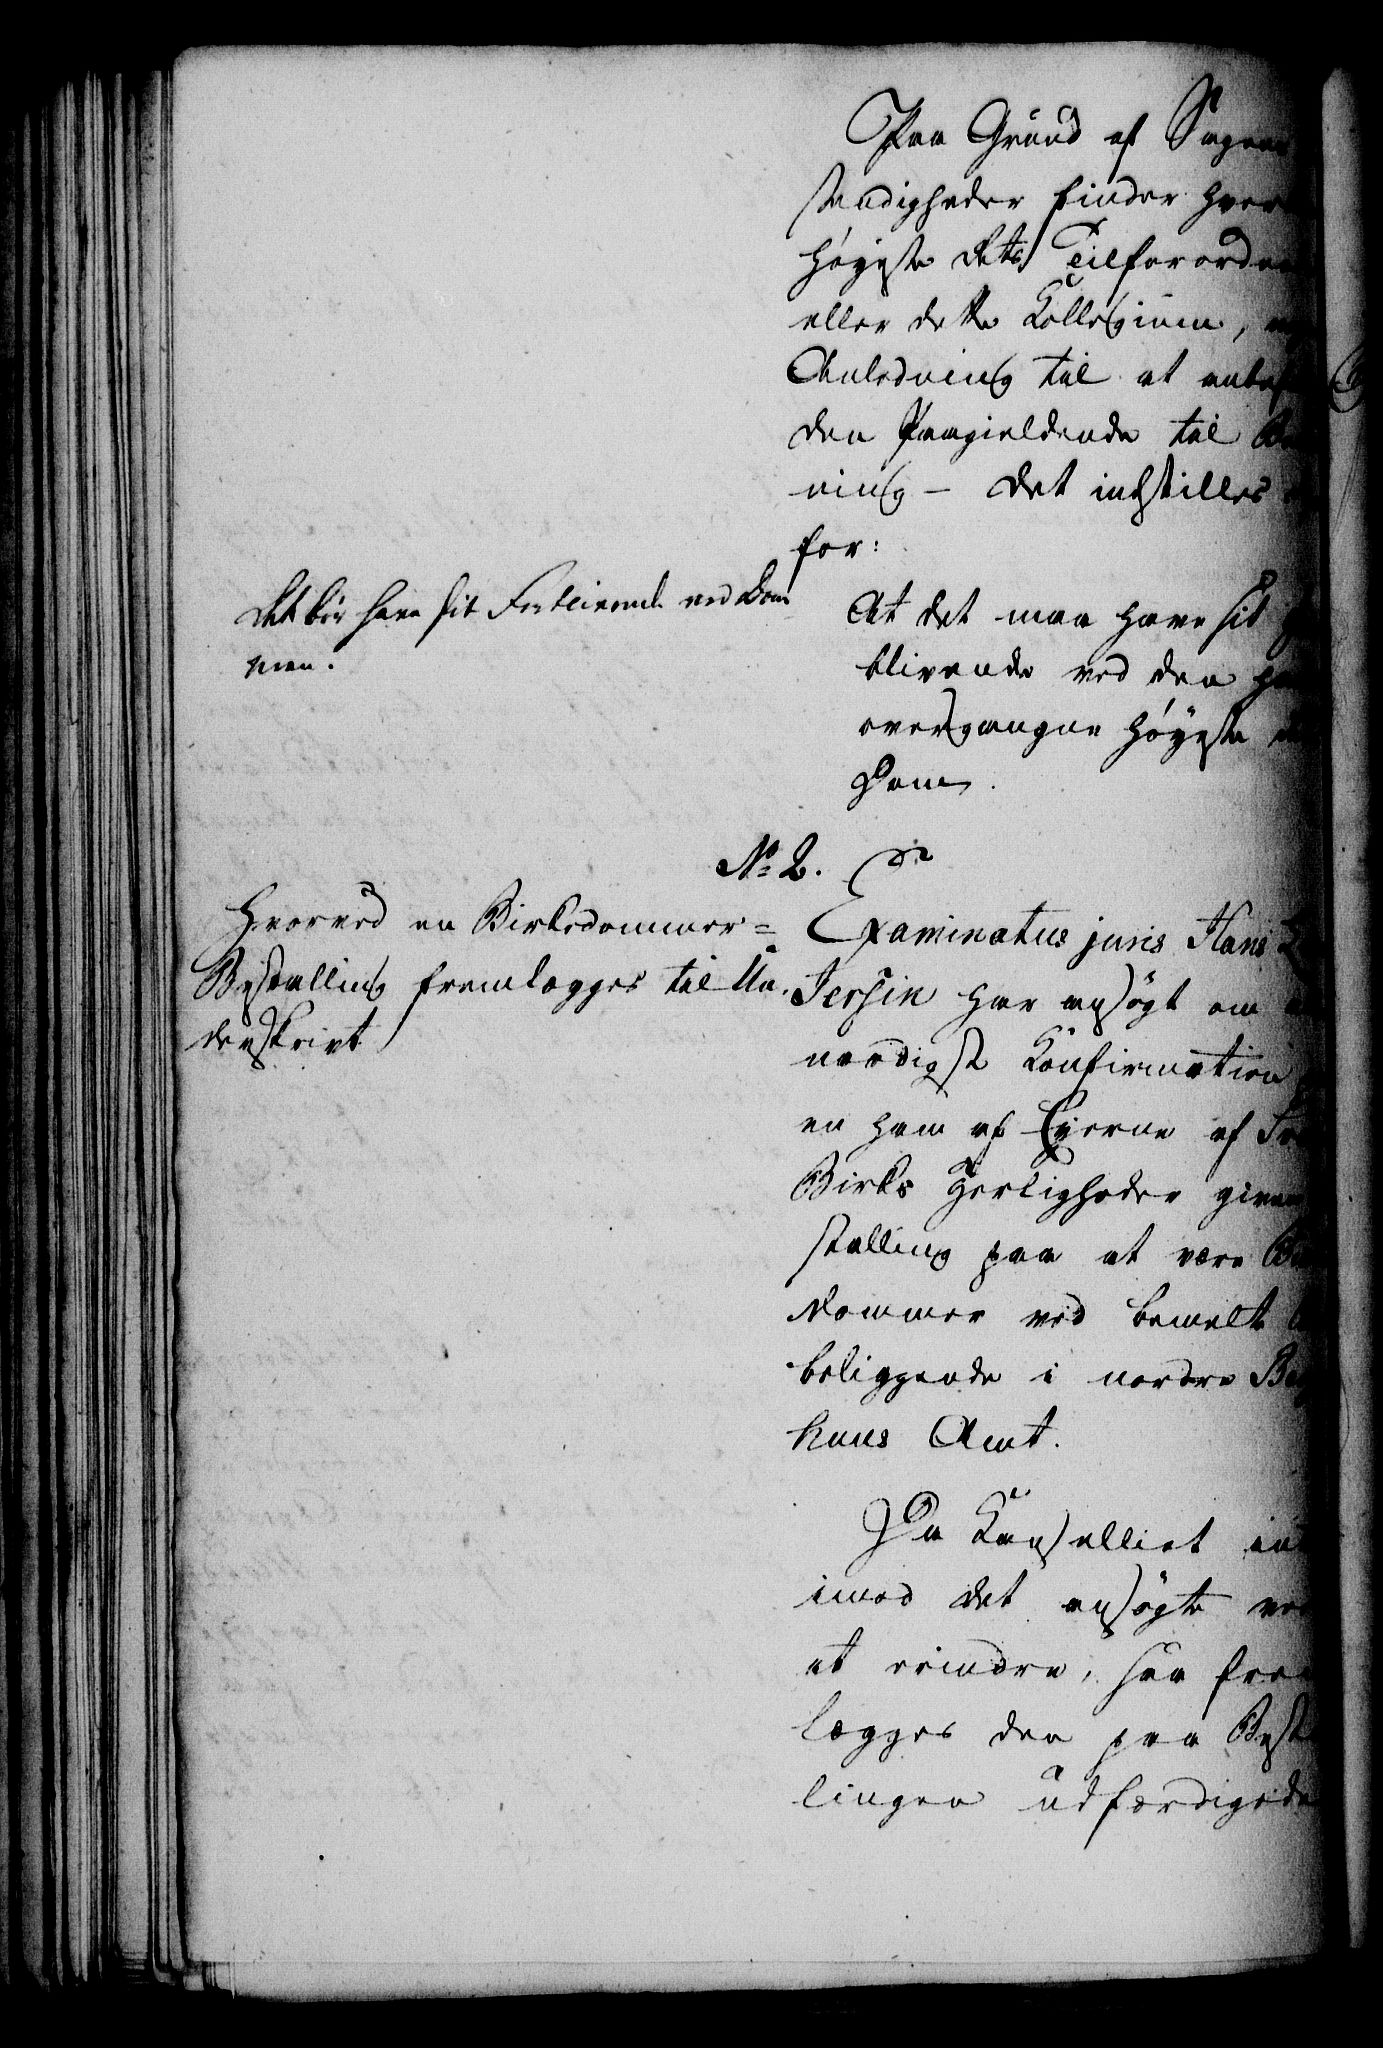 Paa Grund af Sagens
stændigheder finder hver
Høyeste Rets Tilforordne
eller dette Collegium,
Anledning til at anbef
den Paagieldende til Be
ning – Det indstilles
for:
Det bør have sit Forblivende ved Dom
men.
At det maa have sit
blivende ved den
overgangne Høyeste
Dom.
No 2.
Hvorved en Birkedommer=
Bestalling fremlægges til Un
derskrivt
Examinatus juris Hans
Jersin har ansøgt om
naadigst Confirmation
en ham af Eierne af
Birks Herligheder given
stalling paa at være Bi
dommer ved bemelte
beliggende i nordre Berg
huus Amt.
Da Cancelliet int
imod det ansøgte
at erindre, saa frem
lægges den paa Bestal
lingen udfærdigede